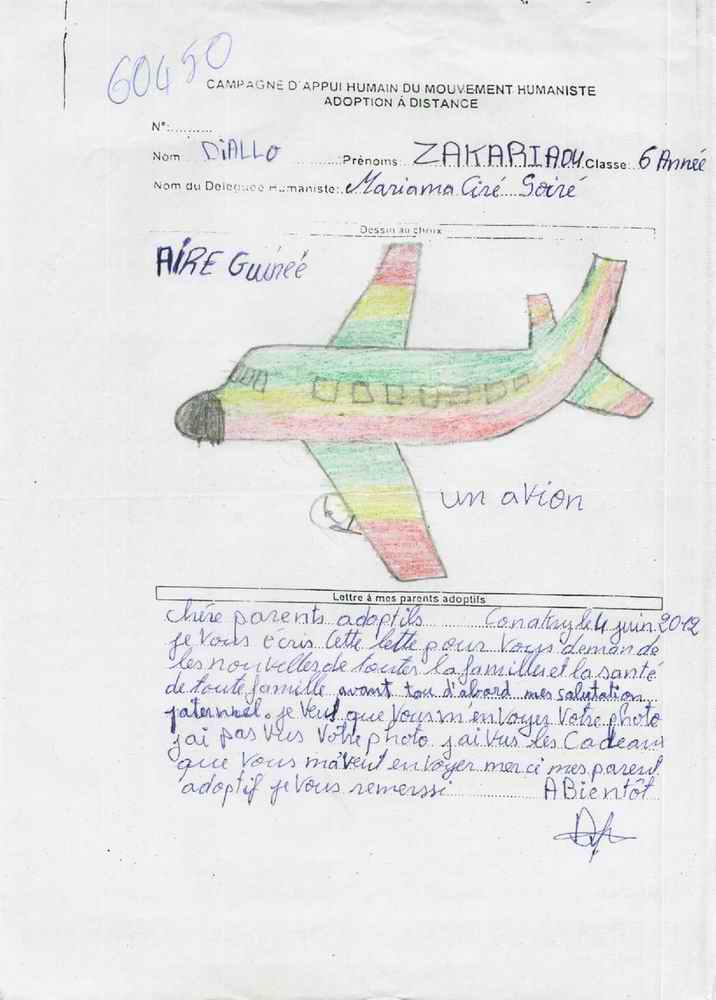 60450
CAMPAGNE D'APPUI HUMAIN DU MOUVEMENT HUMANISTE
ADOPTION À DISTANCE
N°:..........
Nom DiALLO Prénoms: ZAKARIAOU Classe: 6 Année
Nom du Deleguee Humaniste: Mariama Ciré Soiré
Dessin au choix
AIRE Guinéé
un avion
Lettre à mes parents adoptifs
chére parents adoptils Conakry le 4 juin 2012
je vous écris cette lette pour vous demande
les nouvelles de toutes la familles et la santé
de toute famille avant tou d'abord mes salutation
paternnel. je veut que vous m'envoyez votre photo
j'ai pas vus votre photo j'ai vus les cadeaux
que vous m'avent envoyer merci mes parent
adoptif je vous remerssi A Bientôt